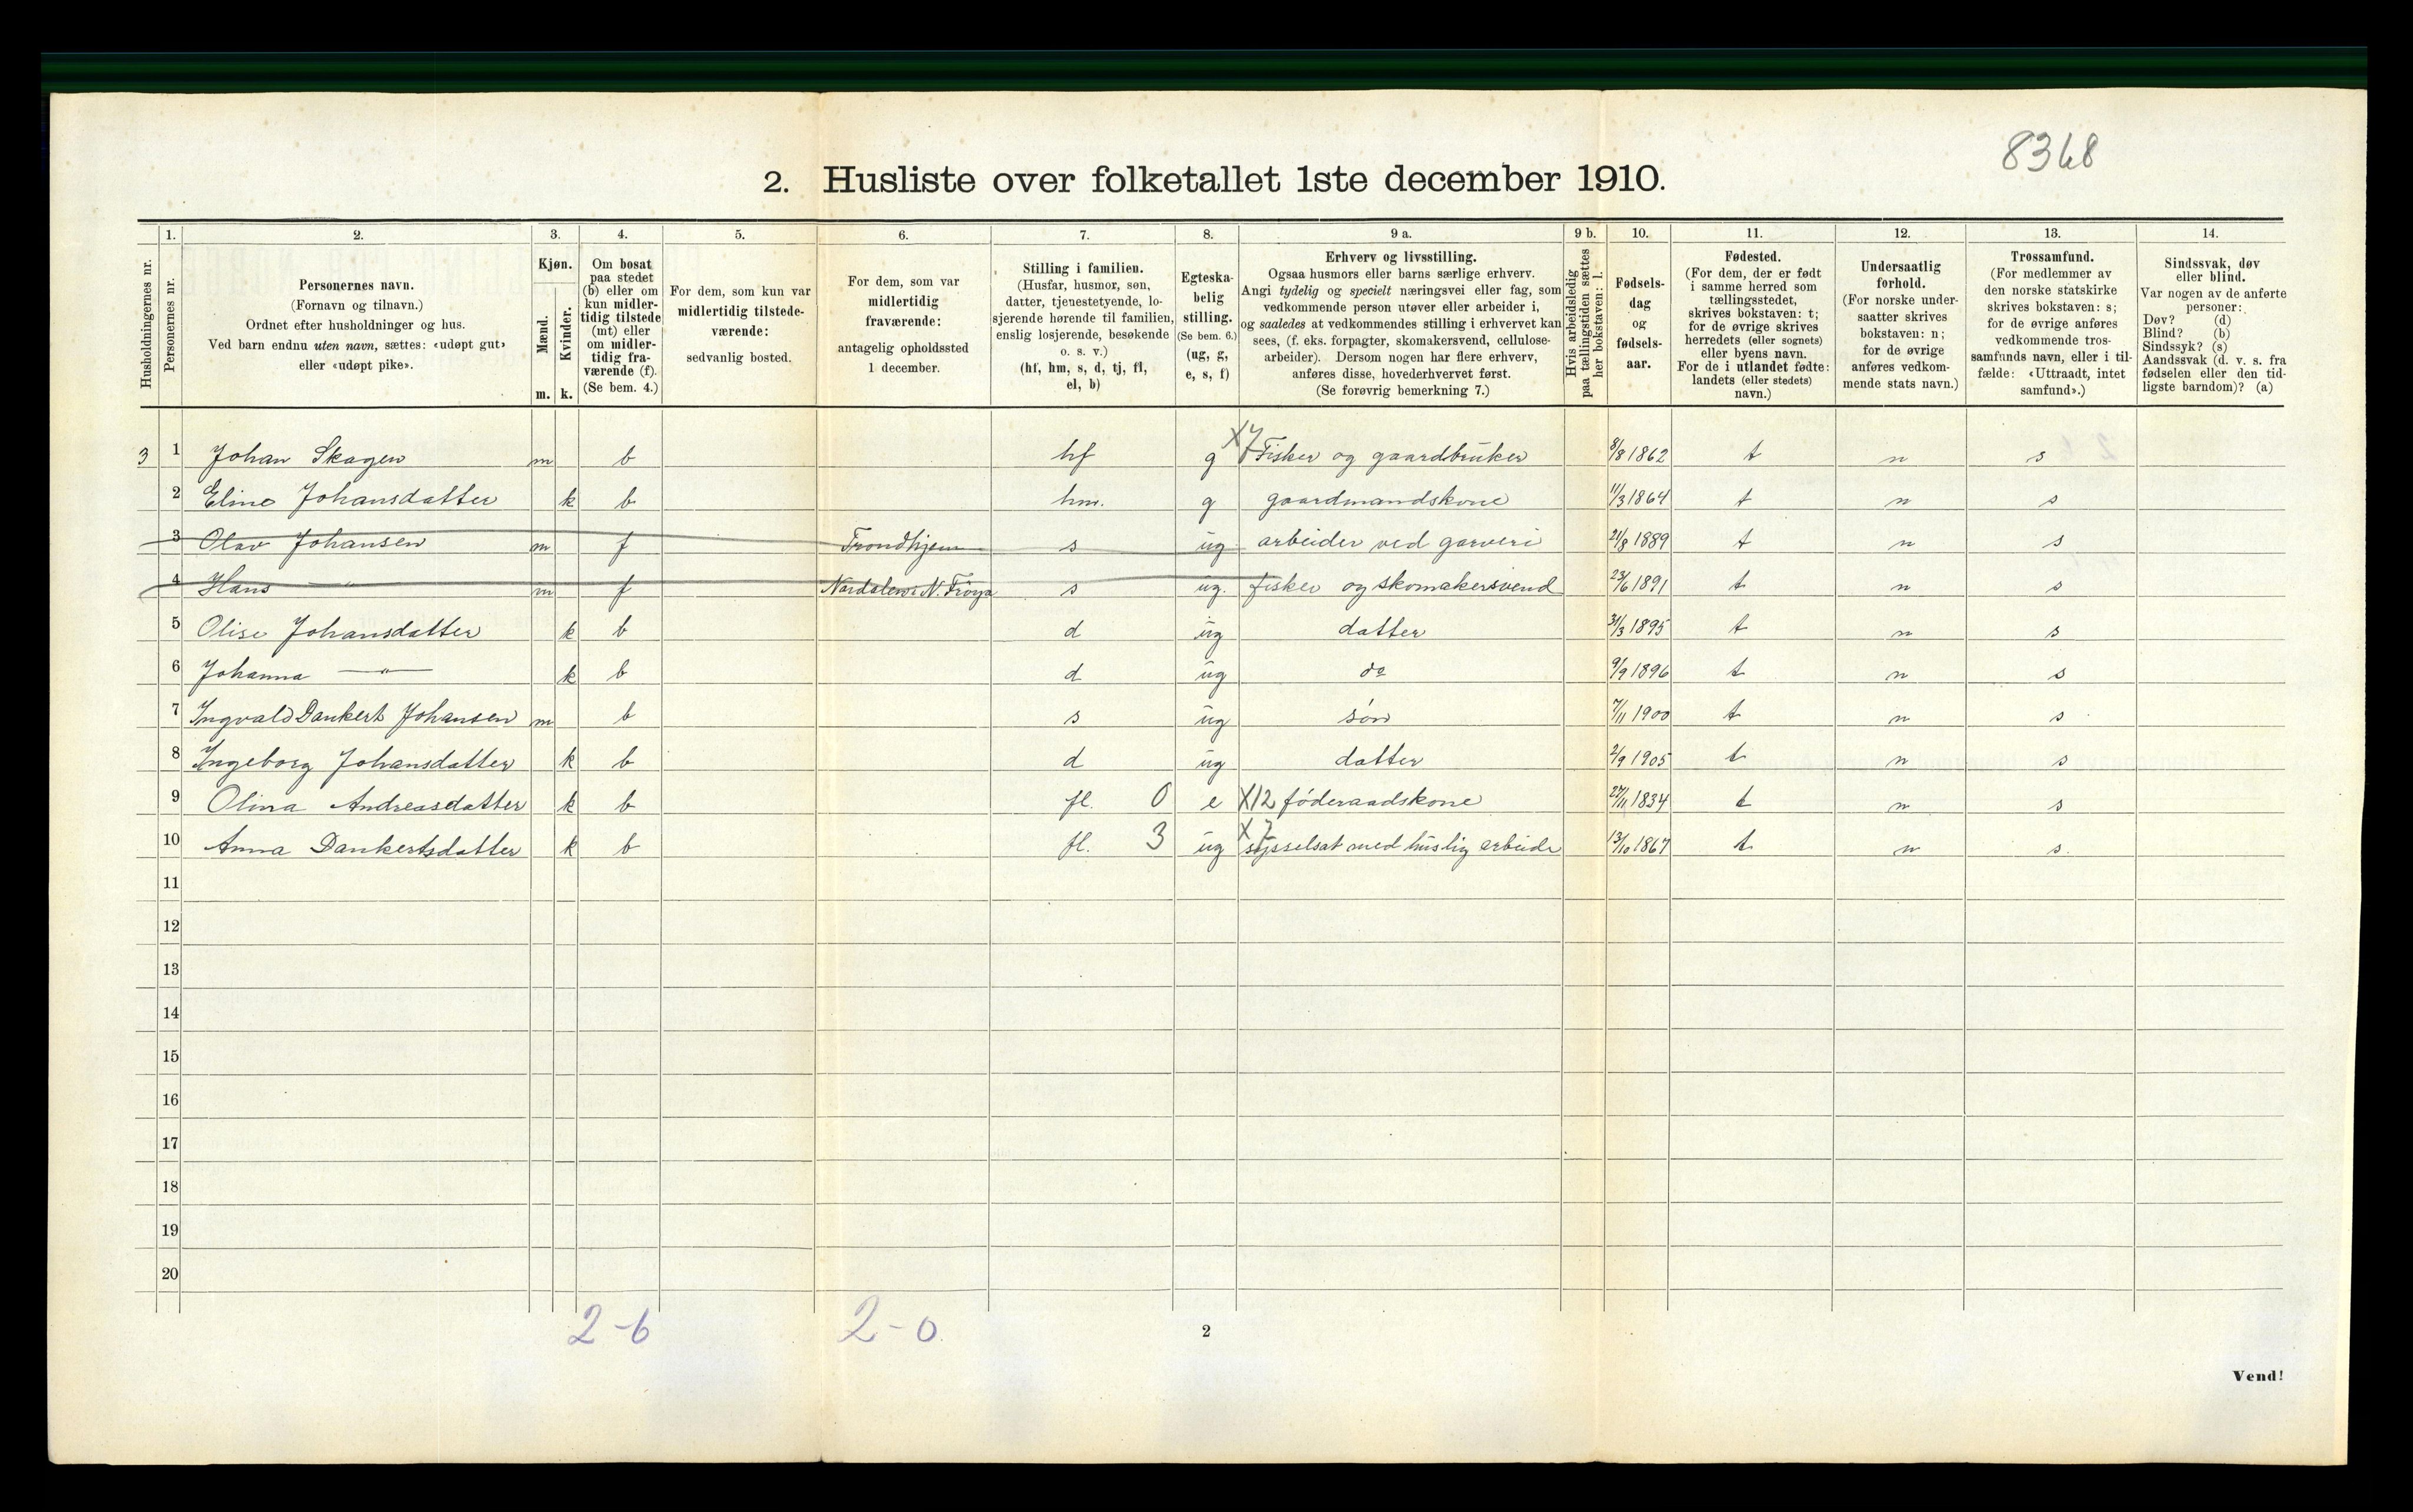 8368
2. Husliste over folketallet 1ste december 1910.
Husholdningernes nr.
1.
Personernes nr.
2.
Personernes navn.
(Fornavn og tilnavn.)
Ordnet efter husholdninger og hus.
Ved barn endnu uten navn, sættes: «udøpt gut»
eller «udøpt pike».
3.
Kjøn.
Mænd.
Kvinder.
m. k.
4.
Om bosat
paa stedet
(b) eller om
kun midler-
tidig tilstede
(mt) eller
om midler-
tidig fra-
værende (f).
(Se bem. 4.)
5.
For dem, som kun var
midlertidig tilstede-
værende:
sedvanlig bosted.
6.
For dem, som var
midlertidig
fraværende:
antagelig opholdssted
1 december.
7.
Stilling i familien.
(Husfar, husmor, søn,
datter, tjenestetyende, lo-
sjerende hørende til familien,
enslig losjerende, besøkende
o. s. v.)
(hf, hm, s, d, tj, fl,
el, b)
8.
Egteska-
belig
stilling.
(Se bem. 6.)
(ug, g,
e, s, f)
9 a.
Erhverv og livsstilling.
Ogsaa husmors eller barns særlige erhverv.
Angi tydelig og specielt næringsvei eller fag, som
vedkommende person utøver eller arbeider i,
og saaledes at vedkommendes stilling i erhvervet kan
sees, (f. eks. forpagter, skomakersvend, cellulose-
arbeider). Dersom nogen har flere erhverv,
anføres disse, hovederhvervet først.
(Se forøvrig bemerkning 7.)
9 b.
Hvis arbeidsledig
paa tællingstiden sættes
her bokstaven: l.
10.
Fødsels-
dag
og
fødsels-
aar.
11.
Fødested.
(For dem, der er født
i samme herred som
tællingsstedet,
skrives bokstaven: t;
for de øvrige skrives
herredets (eller sognets)
eller byens navn.
For de i utlandet fødte:
landets (eller stedets)
navn.)
12.
Undersaatlig
forhold.
(For norske under-
saatter skrives
bokstaven: n;
for de øvrige
anføres vedkom-
mende stats navn.)
13.
Trossamfund.
(For medlemmer av
den norske statskirke
skrives bokstaven: s;
for de øvrige anføres
vedkommende tros-
samfunds navn, eller i til-
fælde: «Uttraadt, intet
samfund».)
14.
Sindssvak, døv
eller blind.
Var nogen av de anførte
personer:
Døv? (d)
Blind? (b)
Sindssyk? (s)
Aandssvak (d. v. s. fra
fødselen eller den tid-
ligste barndom)? (a)
3 1 Johan Skagen m b hf g X7 Fisker og gaardbruker 8/8 1862 t n s
2 Eline Johansdatter k b hm. g gaardmandskone 11/3 1864 t n s
3 Olav Johansen m f Trondhjem s ug arbeider ved garveri 21/8 1889 t n s
4 Hans —"— m f Nordalen i N. Frøya s ug. fisker og skomakersvend 23/6 1891 t n s
5 Olise Johansdatter k b d ug datter 31/3 1895 t n s
6 Johanna —"— k b d ug do 9/9 1896 t n s
7 Ingvald Dankert Johansen m b s ug søn 7/11 1900 t n s
8 Ingeborg Johansdatter k b d ug datter 2/9 1905 t n s
9 Olina Andreasdatter k b fl. 0 e X12 føderaadskone 27/11 1834 t n s
10 Anna Dankertsdatter k b fl. 3 ug X7 sysselsat med huslig arbeide 13/10 1867 t n s.
11
12
13
14
15
16
17
18
19
20
2-6 2-0
2
Vend!